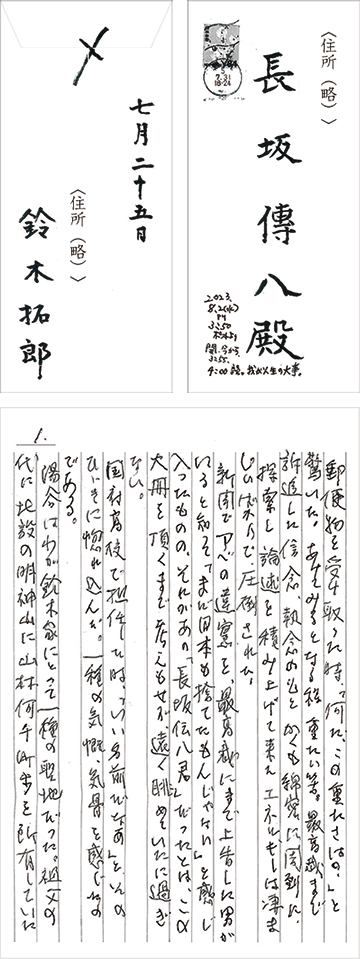 〈住所(略)〉
長坂傳八殿
7.31
18-24
2023.
8.2(水)
PM
3:50
開、今から
3:55.
4:00読。我が人生の大事。
〆
七月二十五日
〈住所(略)〉
鈴木拓郎
1.
郵便物を受け取った時、「何だ、この重たさは。」と
驚いた。あけてみるとなる程重たい筈。最高裁まで
訴追した信念、執念のもとかくも綿密に周到に
探索し論述を積み上げて来たエネルギーは凄ま
じいばかりで圧倒された。
新聞でアベの違憲を、最高裁にまで上告した男が
いると知って「まだ日本も捨てたもんじゃない」と感じ
入ったものの、それがあの「長坂伝八君」だったとは、この
大冊を頂くまで考えもせず遠く眺めていたに過ぎ
ない。
田村高校で担任した時、「いい名前だなあ」といんの
ひびきに惚れ込んだ。一種の気慨、気骨を感じたの
である。
湯谷はわが鈴木家にとって一種の聖地だった。祖父の
代に北設の明神山に山林何千町歩を所有していた